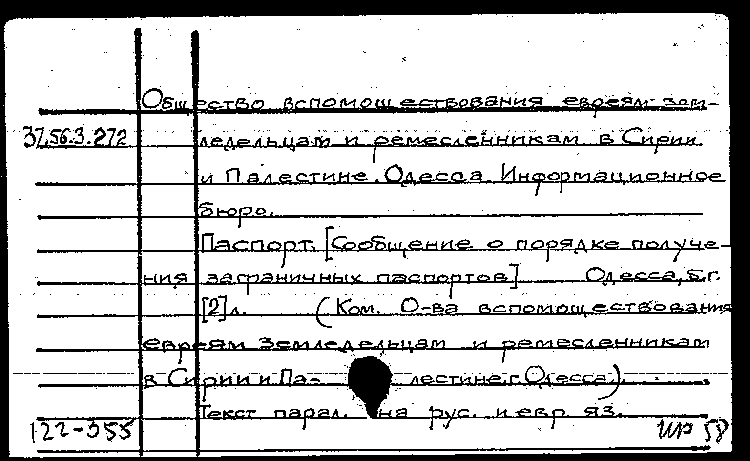 Общество вспомоществования евреям зем-
37.56.3.272 ледельцам и ремесленникам в Сирии
и Палестине. Одесса. Информационное
бюро.
Паспорт. [Сообщение о порядке получе-
ния заграничных паспортов] Одесса, б.г.
[2]л. (Ком. О-ва вспомоществования
евреям земледельцам и ремесленникам
в Сирии и Па- лестине, г. Одесса.)
Текст парал. на рус. и евр. яз.
122-355 ир 58